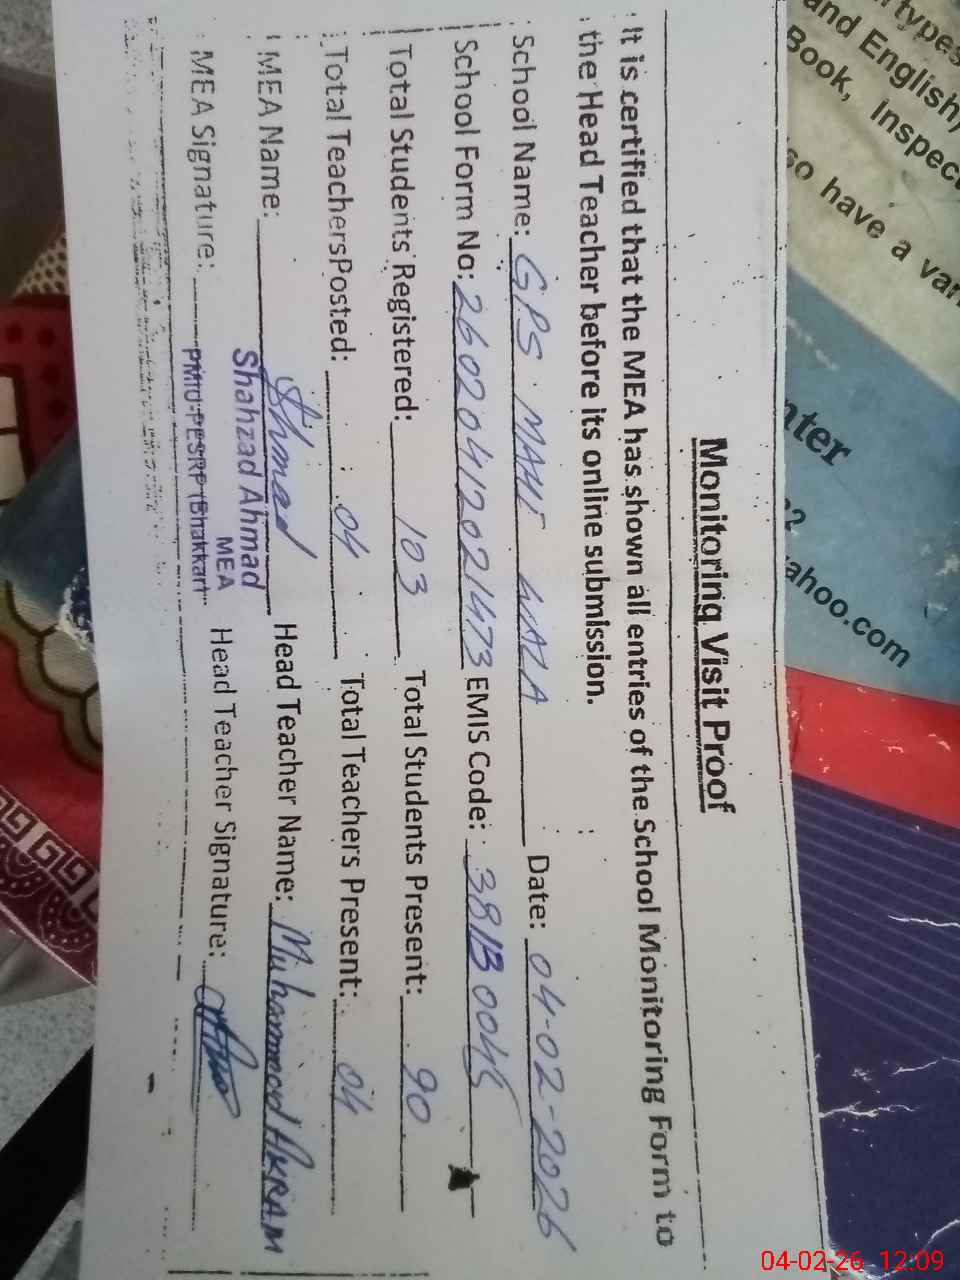 Monitoring Visit Proof
It is certified that the MEA has shown all entries of the School Monitoring Form to
the Head Teacher before its online submission.
School Name: GPS MAHI WALA Date: 04-02-2026
School Form No: 26020412021473 EMIS Code: 381B0045
Total Students Registered: 103 Total Students Present: 90
Total TeachersPosted: 04 Total Teachers Present: 04
MEA Name: Ahmad Head Teacher Name: Muhammad AKRAM
Shahzad Ahmad
MEA
PMIU-PESRP (Bhakkar)
MEA Signature: Head Teacher Signature:
types
and English,
Book, Inspec
so have a var
nter
ahoo.com
04-02-26 12:09